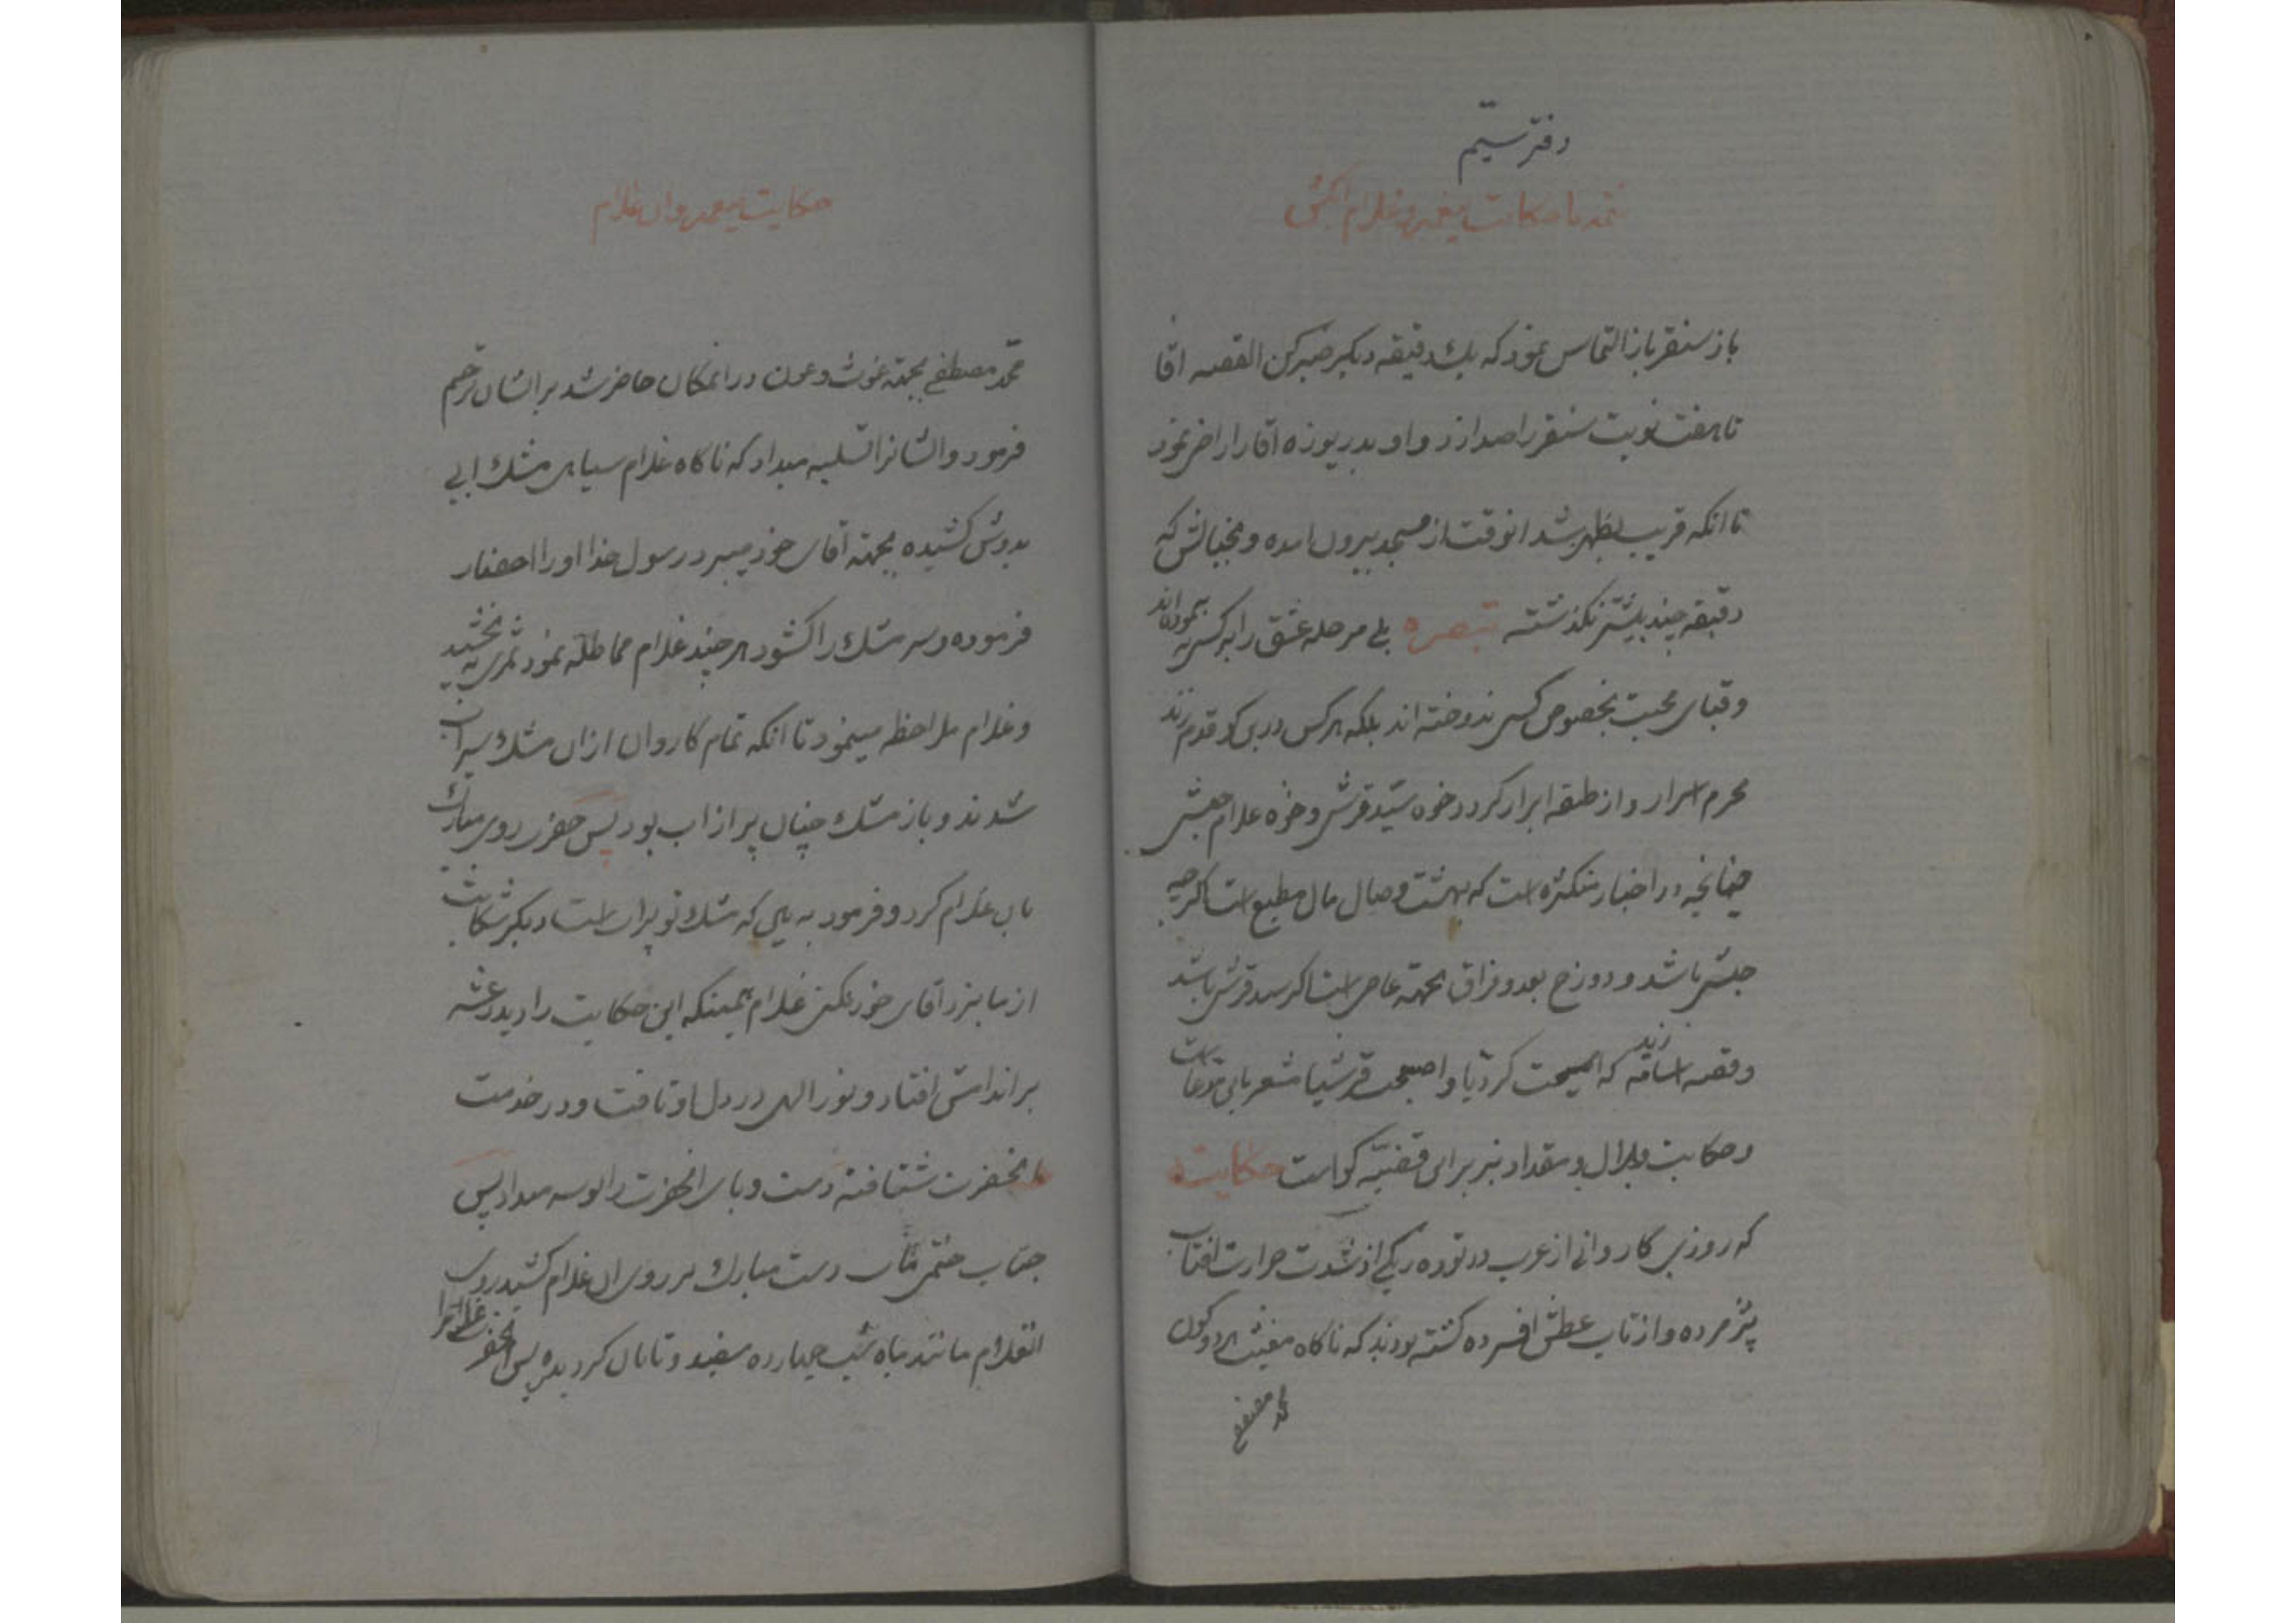 دفتر سیّم
حکایت پیغمبر و غلام
باز سنقر باز التماس نمود که یك دقیقه دیکر صبر کن القصه اقا
تا هفت نوبت سنقر را صدا زد و او بدریوزه اقا را راضی نمود
تا انکه قریب بظهر شد انوقت از مسجد بیرون امده و بخیالش که
دقیقه چند بیشتر نکذشته تبصره بلی مرحله عشق را به کسی نه پیموده‌اند
و قبای محبت بخصوص کسی ندوخته اند بلکه هر کس درین کو قدم زند
محرم اسرار و از طبقه ابرار کردد خوه سیّد قرشی و خوه غلام حبشی
چنانچه در اخبار متکثره است که بهشت وصال مال مطیع است اکرچه
حبشی باشد و دوزخ بعد و فراق بجهته عاصی است اکر سید قرشی باشد
و قصه اسامه زید که امسیت کردیا و اصبحت قرشیا مشعر باین مدعاست
و حکایت بلال و مقداد نیز برای قضیّه کواست حکایت
که روزی کاروانی از عرب در توده ریکی از شدت حرارت افتاب
پژمرده و از تاب عطش افسرده کشته بودند که ناکاه مغیث هر دو کون
محمد مصطفی
حکایت پیغمبر و ان غلام
محمّد مصطفی بجهته غوث و عون در انمکان حاضر شد بر ایشان ترحّم
فرمود و ایشانرا تسلیه میداد که ناکاه غلام سیاهی مشك ابی
بدوش کشیده بجهته اقای خود میبرد رسول خدا او را احضار
فرموده و سر مشك را کشود هر چند غلام مماطله نمود ثمری نه بخشید
و غلام ملاحظه مینمود تا انکه تمام کاروان از ان مشك سیراب
شدند و باز مشك چنان پر از اب بود پس حضرت روی مبارك
بان غلام کرد و فرمود به بین که مشك تو پراب است دیکر شکایت
از ما بنزد اقای خود نکنی غلام همینکه این حکایت را دید رعشه
بر اندامش افتاد و نور الهی در دل او تافت و در خدمت
انحضرت شتافته دست و پای انحضرت را بوسه میداد پس
جناب ختمی مآب دست مبارك بر روی ان غلام کشید روی
انغلام مانند ماه شب چهارده سفید و تابان کردیده پس انحضرت غلام را